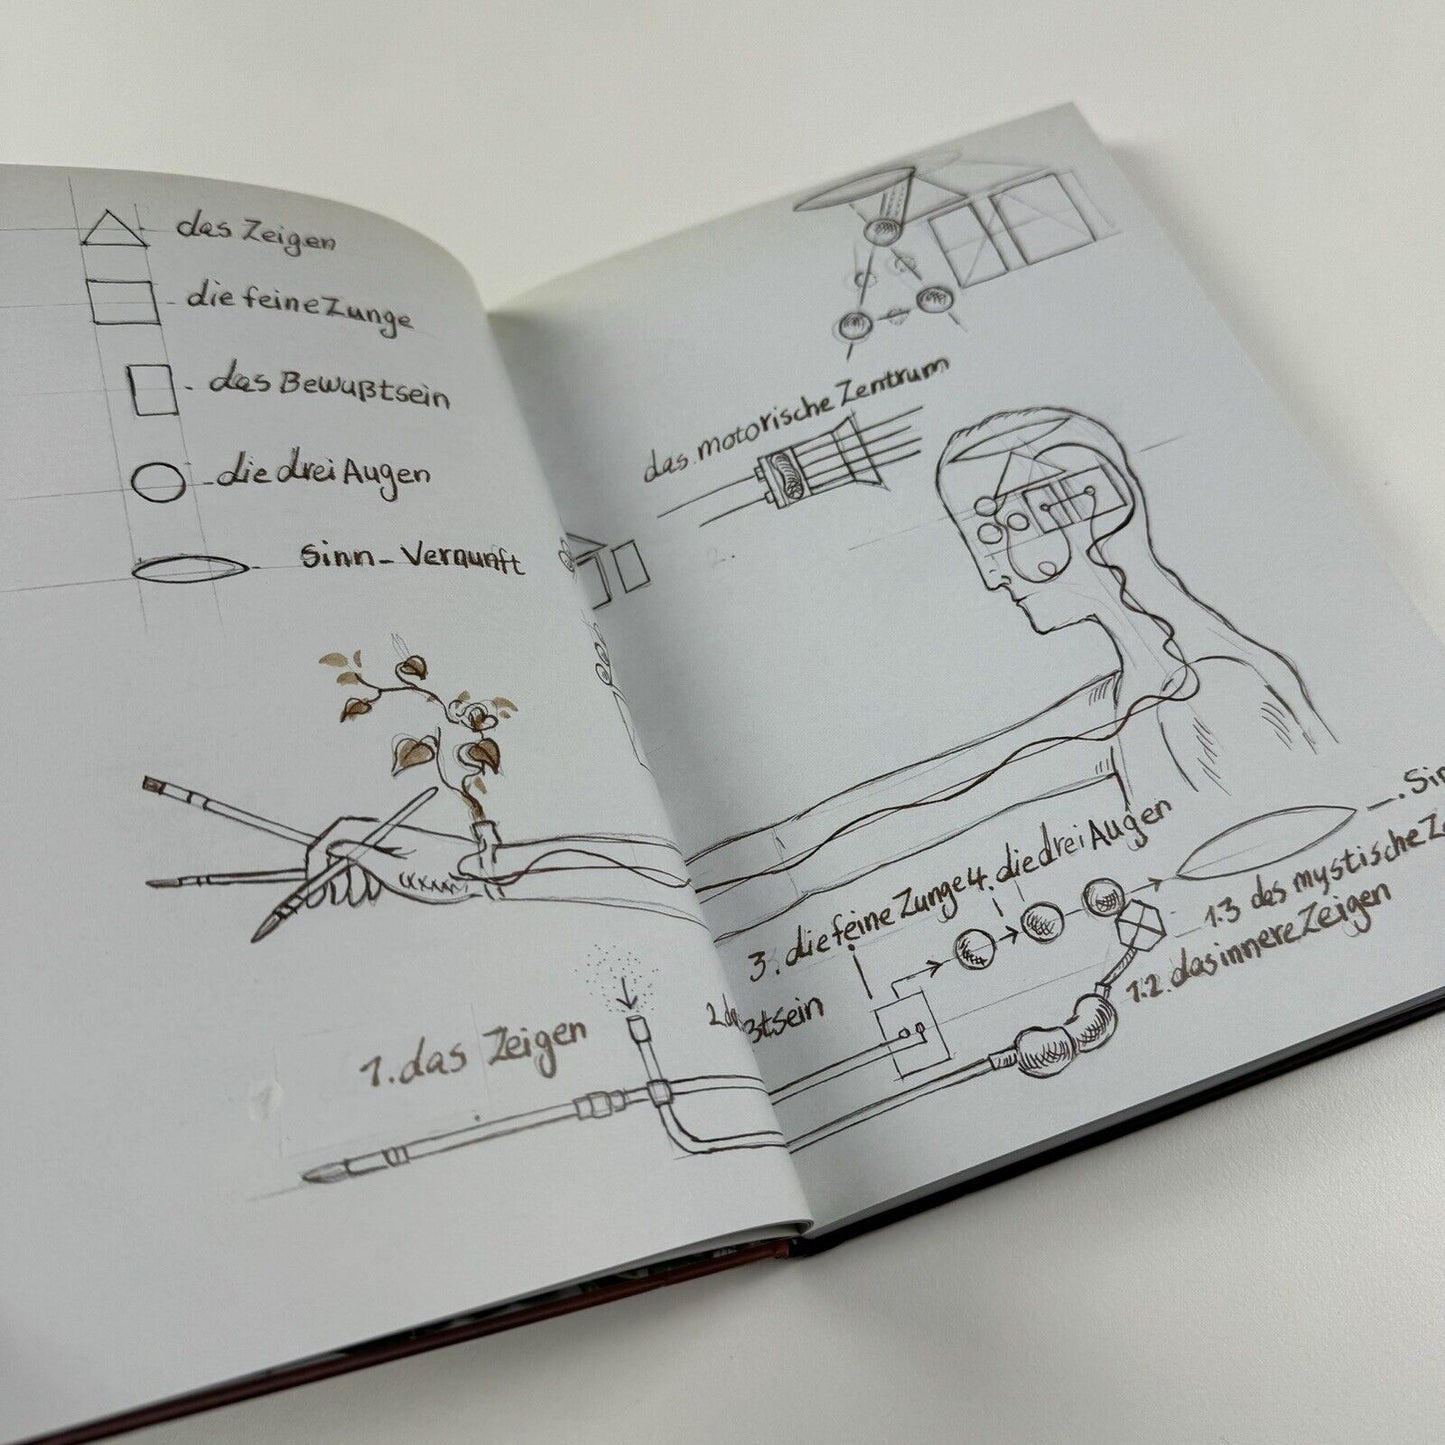 das Zeigen
die feine Zunge
das Bewußtsein
die drei Augen
Sinn-Vernunft
1. das Zeigen
das motorische Zentrum
2.
3. die feine Zunge
4. die drei Augen
ßtsein
1.2. das innere Zeigen
1.3 das mystische